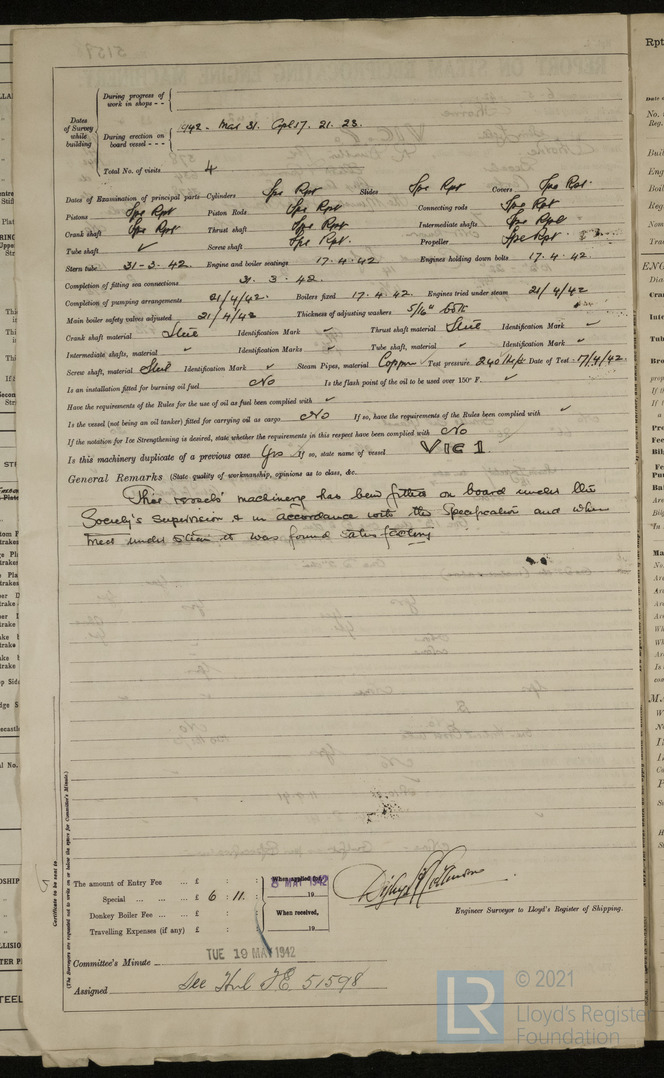 During progress of work in shops - -
Dates of Survey while building
During erection on board vessel - - -
1942 - Mar 31. Apl 17. 21. 23.
Total No. of visits 4
Dates of Examination of principal parts—Cylinders Spe Rpt Slides Spe Rpt Covers Spe Rpt.
Pistons Spe Rpt Piston Rods Spe Rpt Connecting rods Spe Rpt
Crank shaft Spe Rpt Thrust shaft Spe Rpt Intermediate shafts Spe Rpt
Tube shaft ✓ Screw shaft Spe Rpt. Propeller Spe Rpt.
Stern tube 31-3-42. Engine and boiler seatings 17.4.42 Engines holding down bolts 17.4.42.
Completion of fitting sea connections 31.3.42.
Completion of pumping arrangements 21/4/42. Boilers fixed 17.4.42. Engines tried under steam 21/4/42
Main boiler safety valves adjusted 21/4/42 Thickness of adjusting washers 5/16" both
Crank shaft material Steel Identification Mark ✓ Thrust shaft material Steel Identification Mark ✓
Intermediate shafts, material ✓ Identification Marks ✓ Tube shaft, material ✓ Identification Mark ✓
Screw shaft, material Steel Identification Mark ✓ Steam Pipes, material Copper ✓ Test pressure 240 lbs Date of Test 17/4/42.
Is an installation fitted for burning oil fuel No Is the flash point of the oil to be used over 150° F. ✓
Have the requirements of the Rules for the use of oil as fuel been complied with ✓
Is the vessel (not being an oil tanker) fitted for carrying oil as cargo No If so, have the requirements of the Rules been complied with ✓
If the notation for Ice Strengthening is desired, state whether the requirements in this respect have been complied with No
Is this machinery duplicate of a previous case Yes If so, state name of vessel VIC 1
General Remarks (State quality of workmanship, opinions as to class, &c.
This vessels' machinery has been fitted on board under the
Society's Supervision & in accordance with the Specification and when
tried under steam it was found satisfactory
Certificate to be sent to
(The Surveyors are requested not to write on or below the space for Committee's Minute.)
The amount of Entry Fee ... £ : :
Special ... ... ... £ 6 : 11. :
Donkey Boiler Fee ... ... £ : :
Travelling Expenses (if any) £ : :
When applied for,
8 MAY 1942
19
When received,
19
Engineer Surveyor to Lloyd's Register of Shipping.
Committee's Minute TUE 19 MAY 1942
Assigned See Hul F.E. 51598
LR
© 2021
Lloyd's Register
Foundation